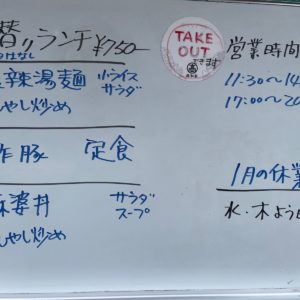 替りランチ ¥750
辣湯麺 小ライス
サラダ
やし炒め
酢豚 定食
麻婆丼 サラダ
スープ
もやし炒め
TAKE
OUT
できます
営業時間
11:30〜14
17:00〜20
1月の休業
水・木よう